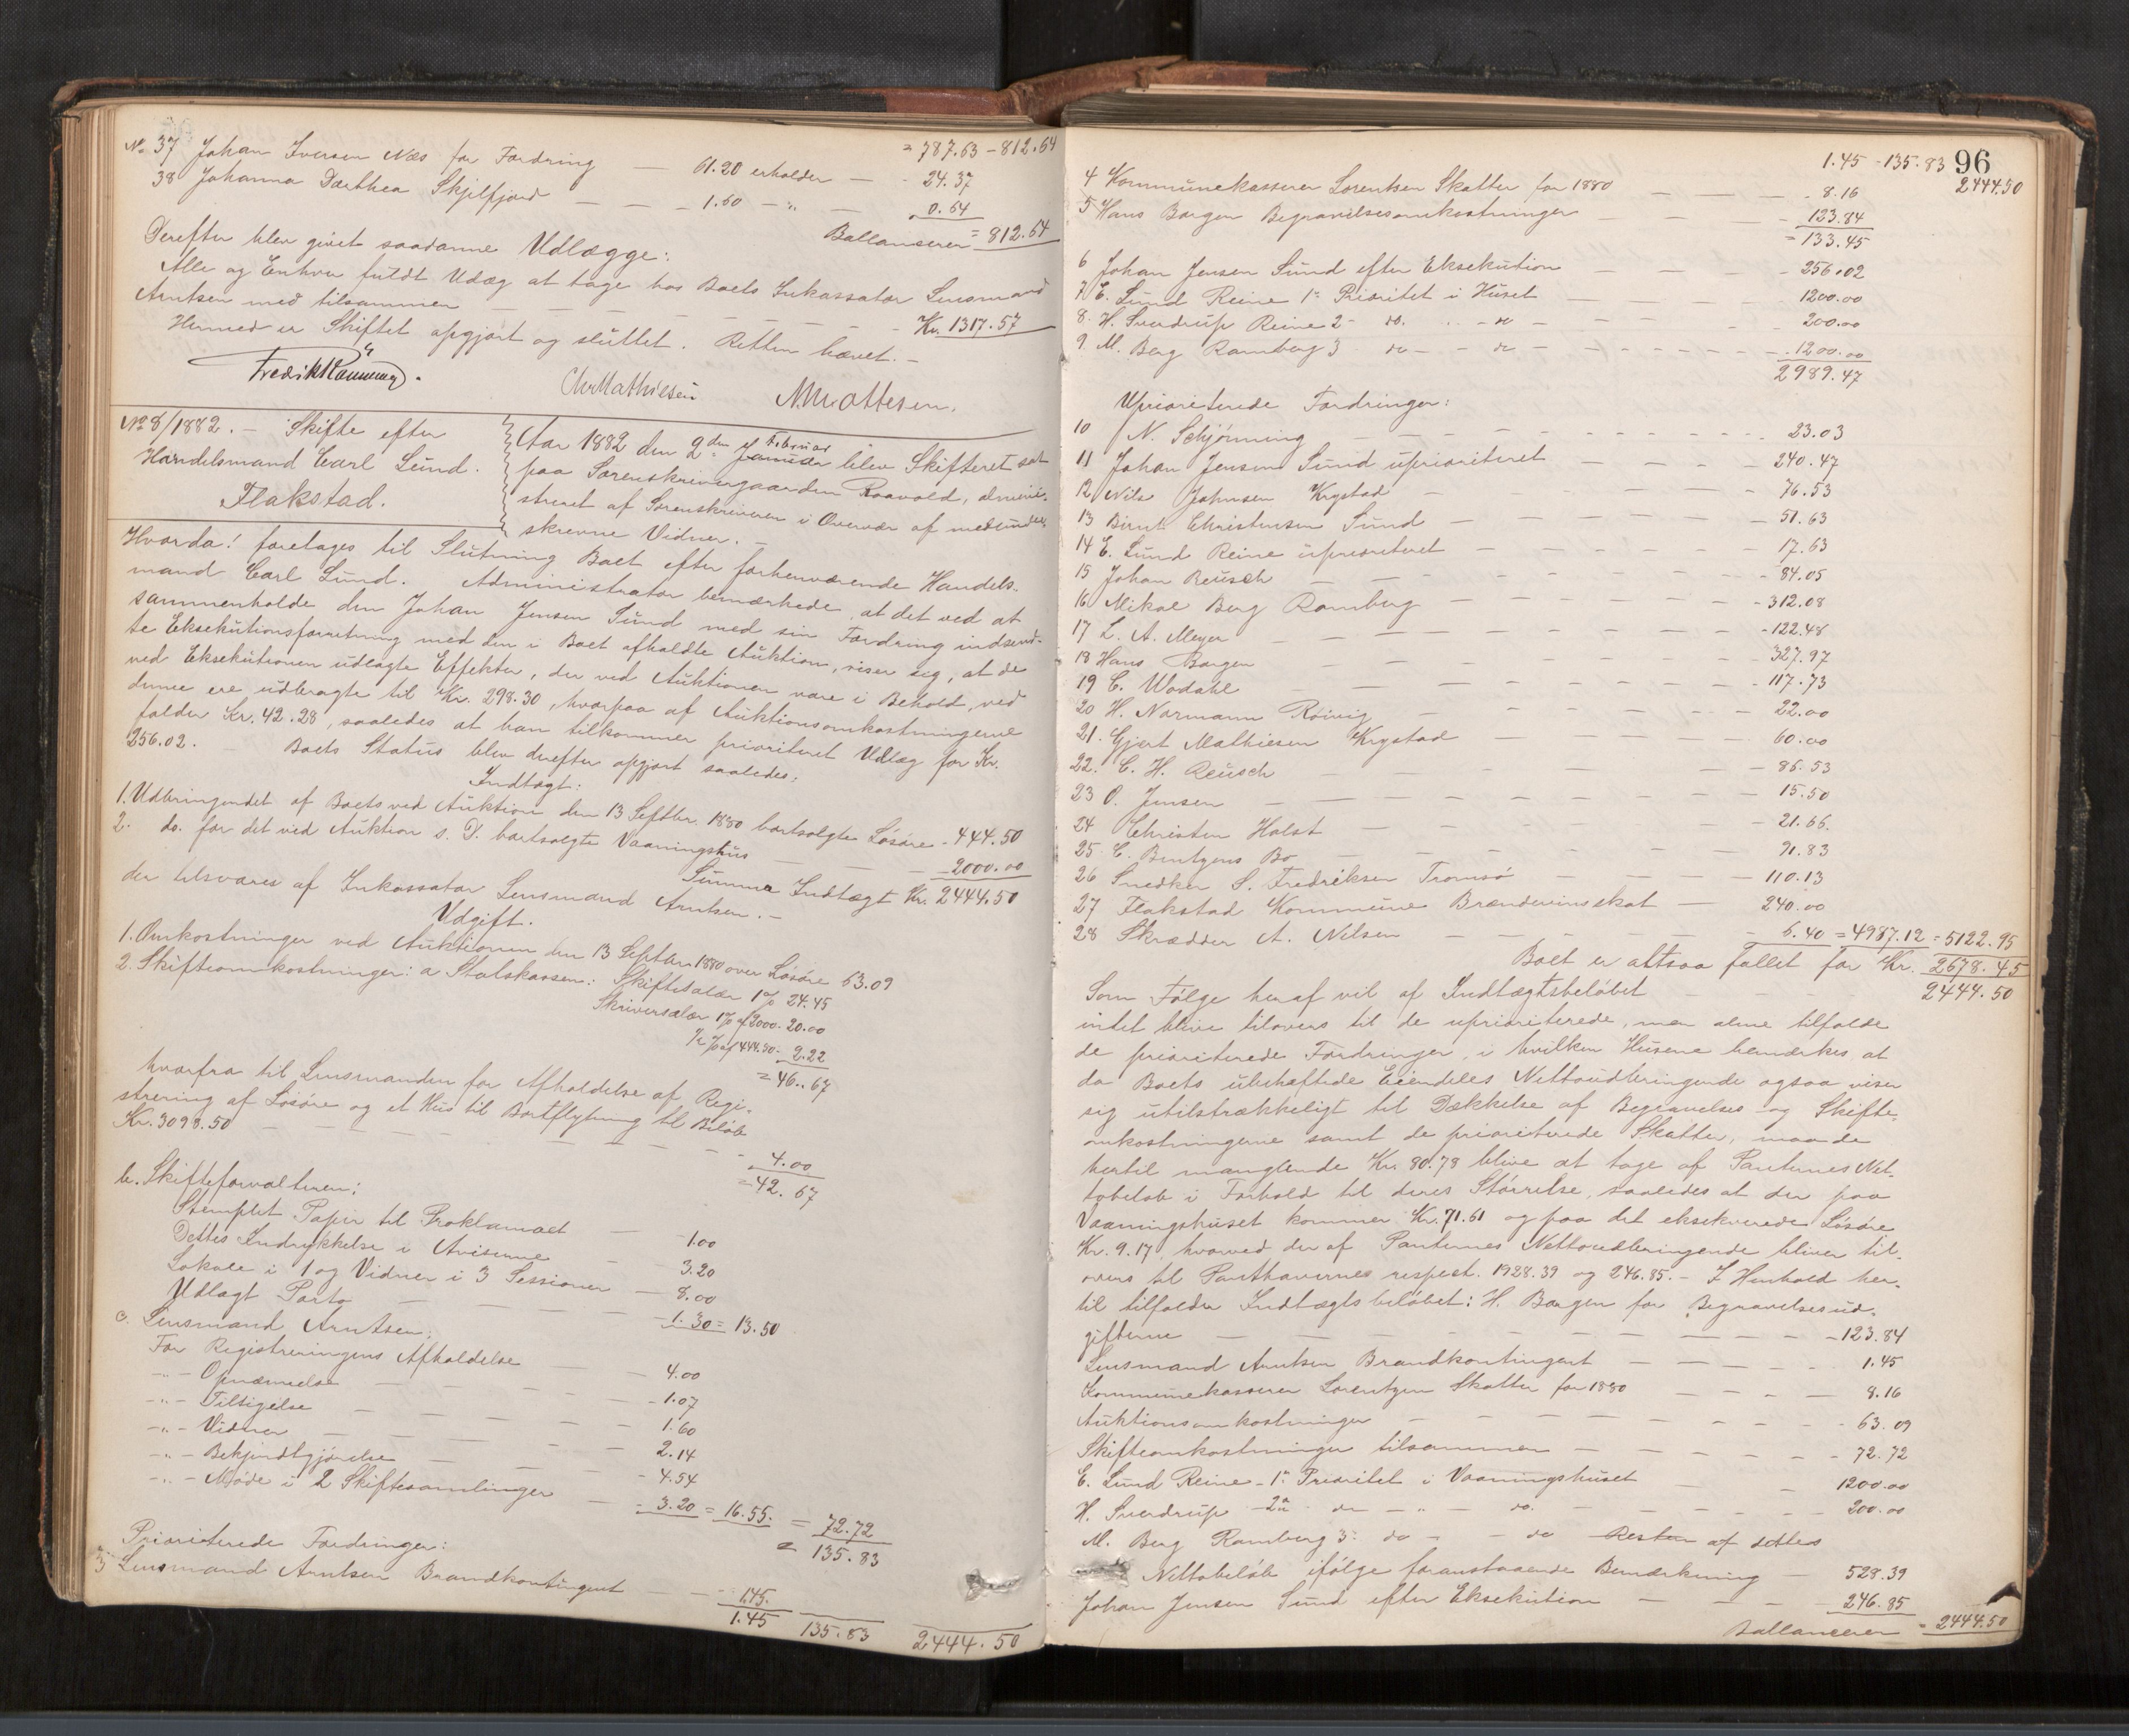 = 787.63 - 812.64
No 37 Johan Iversen Næs for Fordring — 61.20 erholder — 24.37
38 Johanna Dorthea Skjelfjord — — 1.60 — " — 0.64
Ballancerer = 812.64
Derefter blev givet saadanne Udlægge:
Alle og Enhver fuldt Udlæg at tage hos Boets Inkassator Lensmand
Arntsen med tilsammen — — — — — Kr. 1317.57
Hermed er Skiftet opgjort og sluttet. Retten hævet. —
Chr Mathiesen
No 8/1882. — Skifte efter
Handelsmand Carl Lund.
Flakstad.
Aar 1882 den 2den Januar Februar blev Skifteret sat
paa Sorenskrivergaarden Raavold, admini-
streret af Sorenskriveren i Overvær af medunder-
skrevne Vidner. —
Hvorda! foretages til Slutning Boet efter forhenværende Handels-
mand Carl Lund. Administrator bemærkede, at det ved at
sammenholde den Johan Jensen Sund med sin Fordring indsend-
te Eksekutionsforretning med den i Boet afholdte Auktion, viser sig, at de
ved Eksekutionen udlagte Effekter, der ved Auktionen vare i Behold, ved
denne ere udbragte til Kr. 298.30, hvorpaa af Auktionsomkostningerne
falder Kr. 42.28, saaledes at han tilkommer prioriteret Udlæg for Kr.
256.02. Boets Status blev derefter opgjort saaledes:
Indtægt:
1. Udbringendet af Boets ved Auktion den 13 Septbr. 1880 bortsolgte Løsøre - 444.50
2. do. for det ved Auktion s. D. bortsolgte Vaaningshus — — 2000.00
Summa Indtægt Kr. 2444.50
der tilsvares af Inkassator Lensmand Arntsen. —
Udgift.
1. Omkostninger ved Auktionen den 13 Septbr 1880 over Løsøre 63.09
2. Skifteomkostninger: a Statskassen: Skiftesalær 1% 24.45
Skriversalær 1% af 2000 - 20.00
1/2 % af 444.50 - 2.22
= 46.67
hvorfra til Lensmanden for Afholdelse af Regi-
strering af Løsøre og et Hus til Bortflytning til Beløb
Kr. 3098.50 — — — — — 4.00
= 42.67
b. Skifteforvalteren:
Stemplet Papir til Proklamaet — 1.00
Dettes Indrykkelse i Aviserne — 3.20
Lokale i 1 og Vidner i 3 Sessioner — 8.00
Udlagt Porto — — — — 1.30 = 13.50
c. Lensmand Arntsen:
For Registreringens Afholdelse — 4.00
— " — Opnævnelse — — — 1.07
— " — Tilsigelse — — — 1.60
— " — Vidner — — — 2.14
— " — Bekjendtgjørelse — — 4.54
— " — Møde i 2 Skiftesamlinger — 3.20 = 16.55. = 72.72
= 135.83
Prioriterede Fordringer:
3 Lensmand Arntsen Brandkontingent — — 1.45.
1.45 135.83 2444.50
96
1.45 - 135.83 2444.50
4 Kommunekasserer Lorentsen Skatter for 1880 — — — 8.16
5 Hans Borgen Begravelsesomkostninger — — — 123.84
= 133.45
6 Johan Jensen Sund efter Eksekution — — — 256.02
7 E. Lund Reine 1ste Prioritet i Huset — — — 1200.00
8. H. Sverdrup Reine 2 - do. - - do — — — 200.00
9. M. Berg Ramberg 3 do — - do — — — 1200.00
2989.47
Uprioriterede Fordringer:
10 N. Schjønning — — — — 23.03
11 Johan Jensen Sund uprioriteret — — — 240.47
12 Nils Johnsen Krystad — — — 76.53
13 Bernt Christensen Sund — — — 51.63
14 E. Lund Reine uprioriteret — — — 17.63
15 Johan Reusch — — — — 84.05
16 Mikal Berg Ramberg — — — 312.08
17 L. A. Meyer — — — — 122.48
18 Hans Borgen — — — — 327.97
19 C. Wodahl — — — — 117.73
20 H. Normann Røivig — — — 22.00
21. Gjert Mathiesen Krystad — — — 60.00
22. C. H. Reusch — — — — 86.53
23 O. Jensen — — — — 15.50
24 Christen Holst — — — — 21.66.
25. C. Bentzens Bo — — — — 91.83
26 Snedker S. Fredriksen Tromsø — — — 110.13
27 Flakstad Kommune Brændevinsskat — — 240.00
28 Skrædder A. Nilsen — — — 6.40 = 4987.12 = 5122.95
Boet er altsaa fallet for Kr. 2678.45
Som Følge heraf vil af Indtægtsbeløbet — — — 2444.50
intet blive tilovers til de uprioriterede, men alene tilfalde
de prioriterede Fordringer, i hvilken Husene bemærkes, at
da Boets ubehæftede Eiendeles Nettoudbringende ogsaa viser
sig utilstrækkeligt til Dækkelse af Begravelses- og Skifte-
omkostningerne samt de prioriterede Skatter, maa de
hertil manglende Kr. 80.78 blive at tage af Panternes Net-
tobeløb i Forhold til deres Størrelse, saaledes at der paa
Vaaningshuset kommer Kr. 71.61 og paa det eksekverede Løsøre
Kr. 9.17, hvorved der af Panternes Nettoudbringende bliver til-
overs til Panthaverne respect. 1928.39 og 246.85. — I Henhold her-
til tilfalder Indtægtsbeløbet: H. Borgen for Begravelsesud-
gifterne — — — — — 123.84
Lensmand Arntsen Brandkontingent — — — 1.45
Kommunekasserer Lorentzen Skatter for 1880 — — — 8.16
Auktionsomkostninger — — — — 63.09
Skifteomkostninger tilsammen — — — 72.72
E. Lund Reine - 1ste Prioritet i Vaaningshuset — — 1200.00
H. Sverdrup - 2den do — " — do. — — 200.00
M. Berg Ramberg 3: do — - do Resten af dettes
Nettobeløb ifølge foranstaaende Bemærkning — 528.39
Johan Jensen Sund efter Eksekution — — — 246.85
Ballancerer = 2444.50